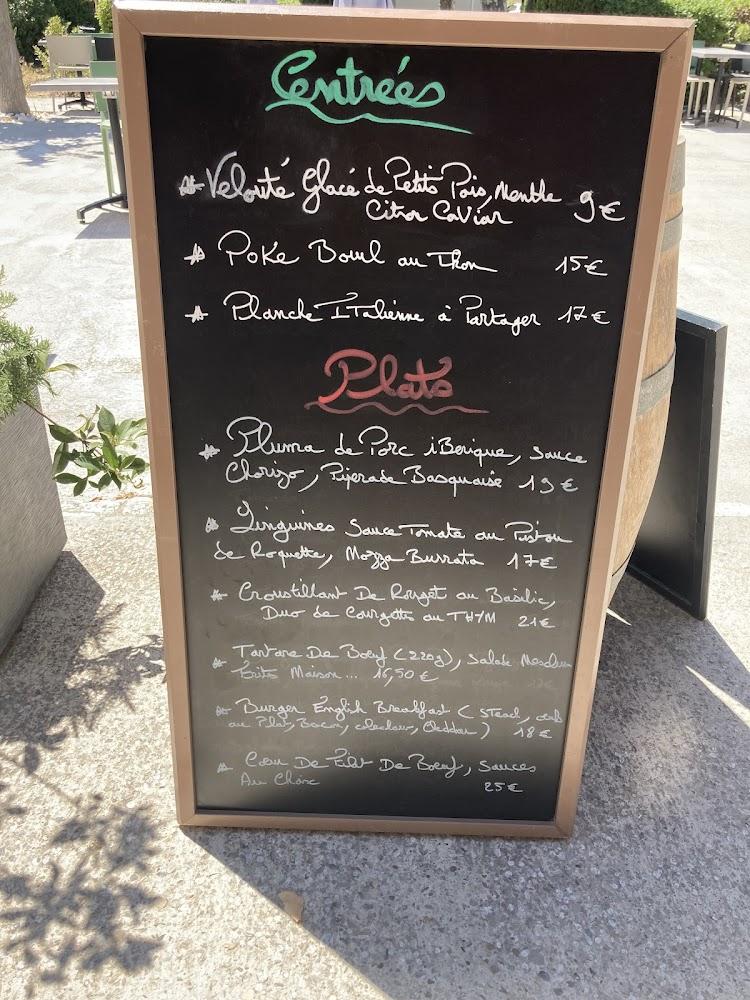 Entrées
Velouté Glacé de Petits Pois, Menthe
Citron Caviar 9€
Poke Bowl au Thon 15€
Planche ITalienne à Partager 17€
Plats
Pluma de Porc iBerique, sauce
Chorizo, Piperade Basquaise 19€
Linguines Sauce Tomate ou Pistou
de Roquette, Mozza Burrata 17€
Croustillant De Rouget au Basilic,
Duo de Courgettes au THYM 21€
Tartare De Boeuf (220g), Salade Mesclun
Frites Maison... 16,50€
Burger English Breakfast (Steack, oeuf
au Plat, Bacon, Cheddar) 18€
Coeur De Filet De Boeuf, Sauces
Au Choix 25€